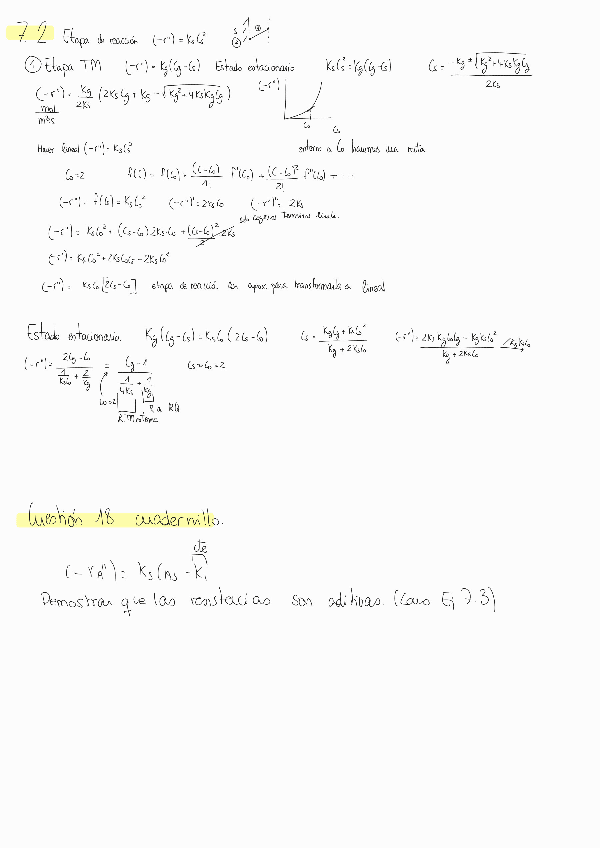 7.2 Etapa de reacción (-r'') = Ks Cs²
① Etapa TM (-r'') = Kg(Cg-Cs) Estado estacionario Ks Cs² = Kg(Cg-Cs) Cs = -Kg ± √(Kg²+4KsKgCg) / 2Ks
(-r'') = Kg/2Ks (2KsCg + Kg - √(Kg²+4KsKgCg)) (-r'')
mol/m²s
Co Cs
Hacer lineal (-r'') = KsCs² entorno a Co hacemos una recta
Co=2 f(C) = f(Co) + (C-Co)/1! f'(Co) + (C-Co)²/2! f''(Co) + ...
(-r'') = f(Co) = KsCo² (-r'')' = 2KsCo (-r'')'' = 2Ks
solo cogemos terminos lineales.
(-r'') = KsCo² + (Cs-Co) 2KsCo + (Cs-Co)²/2 2Ks
(-r'') = KsCo² + 2KsCoCs - 2KsCo²
(-r'') = KsCo[2Cs-Co] etapa de reacción con aprox para transformarla a lineal
Estado estacionario. Kg(Cg-Cs) = KsCo(2Cs-Co) Cs = KgCg + KsCo² / Kg + 2KsCo (-r'') = 2KsKgCoCg - KgKsCo² / Kg + 2KsCo / KgKsCo
(-r'') = 2Cg-Co / 1/KsCo + 2/Kg = Cg-1 / 1/4Ks + 1/Kg Cs≈Co=2
Co=2 R a RQ
R TM externa
Cuestión 18 cuadernillo.
cte
(-rA'') = Ks(As - K)
Demostrar que las resistecias son aditivas. (Como Ej 7.3)